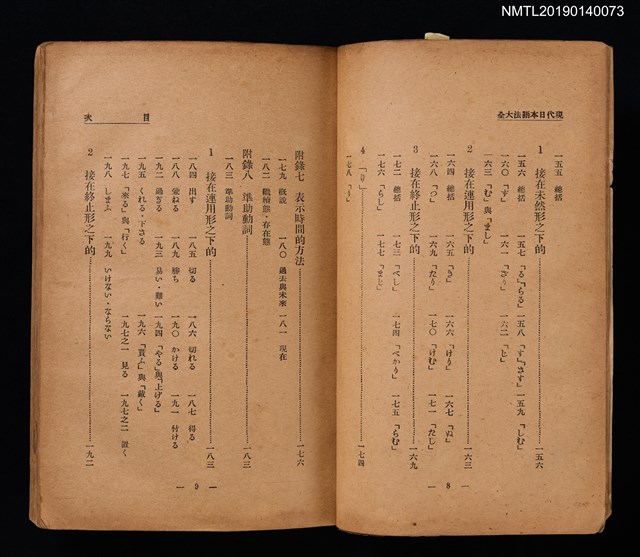 NMTL20190140073
現代日本語法大全
一五五 總括
1 接在未然形之下的 一五六
一五六 總括 一五七 「る」「らる」 一五八 「す」「さす」 一五九 「しむ」
一六〇 「ず」 一六一 「ざり」 一六二 「じ」
一六三 「む」與「まし」
2 接在連用形之下的 一六三
一六四 總括 一六五 「き」 一六六 「けり」 一六七 「ぬ」
一六八 「つ」 一六九 「たり」 一七〇 「けむ」 一七一 「たし」
3 接在終止形之下的 一六九
一七二 總括 一七三 「べし」 一七四 「べかり」 一七五 「らむ」
一七六 「らし」 一七七 「まじ」
4 「り」 一七四
一七八 「り」
— 8 —
目次
附錄七 表示時間的方法 一七六
一七九 概説 一八〇 過去與未來 一八一 現在
一八二 繼續態・存在態
附錄八 準助動詞 一八三
一八三 準助動詞
1 接在運用形之下的 一八三
一八四 出す 一八五 切る 一八六 切れる 一八七 得る
一八八 兼ねる 一八九 勝ち 一九〇 かける 一九一 付ける
一九二 過ぎる 一九三 易い・難い 一九四 「やる」與「上げる」
一九五 くれる・下さる 一九六 「貰ふ」與「戴く」
一九七 「來る」與「行く」 一九七之一 見る 一九七之二 置く
一九八 しまふ 一九九 いけない・ならない
2 接在終止形之下的 一九二
— 9 —